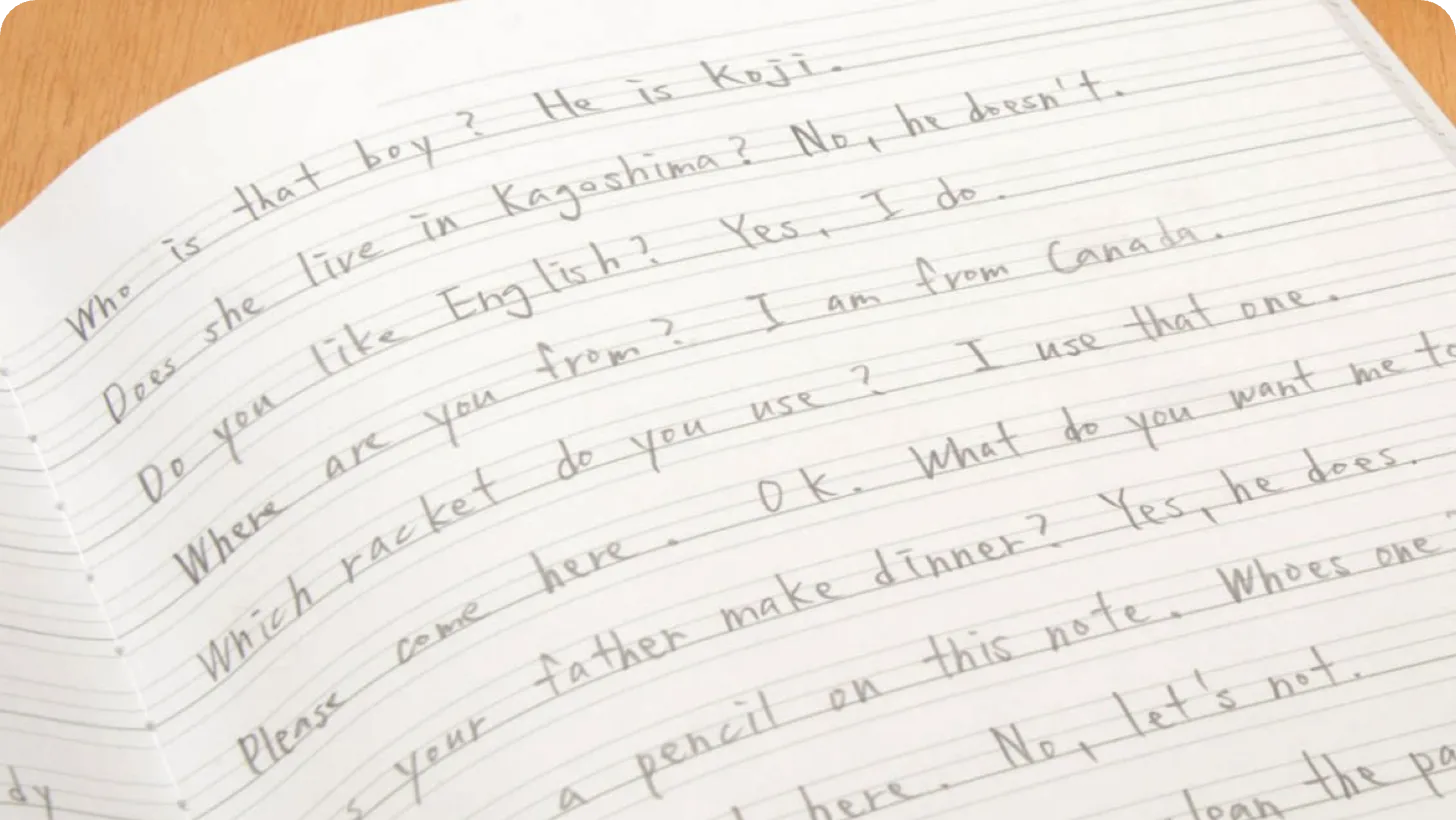 Who is that boy? He is Koji.
Does she live in Kagoshima? No, he doesn't.
Do you like English? Yes, I do.
Where are you from? I am from Canada.
Which racket do you use? I use that one.
Please come here. OK. What do you want me to
your father make dinner? Yes, he does.
a pencil on this note. Whoes one
here. No, let's not.
the